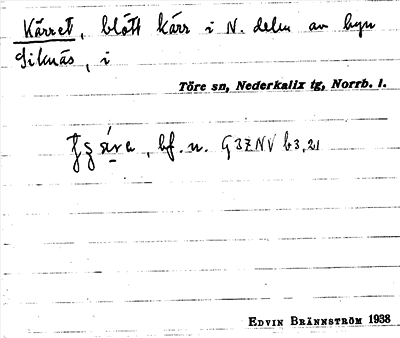 Kärret, blött kärr i N. delen av byn
Siknäs, i
Töre sn, Nederkalix tg, Norrb. l.
bf. n. G3ZNV b3,21
Edvin Brännström 1938